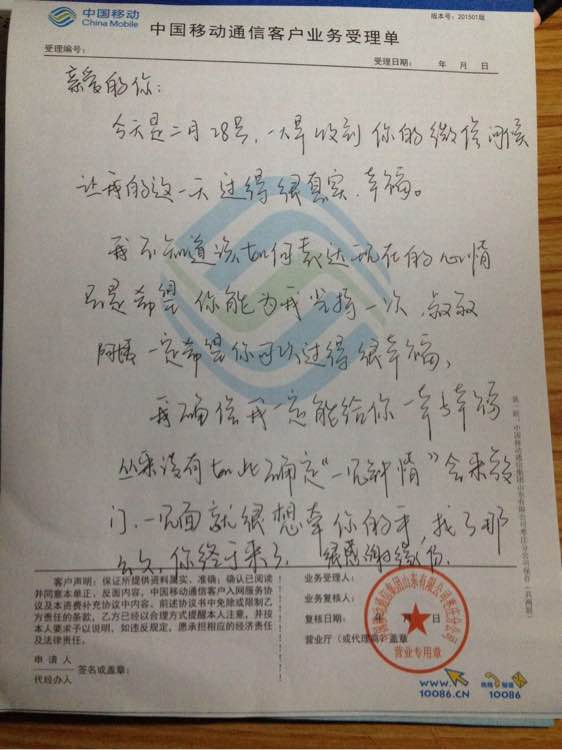 中国移动
China Mobile
版本号：201501版
中国移动通信客户业务受理单
受理编号：
受理日期： 年 月 日
亲爱的你：
今天是二月28号，一大早收到你的微信问候
让我的这一天过得很真实、幸福。
我不知道该如何表达现在的心情
只是希望你能为我坚持一次，叔叔
阿姨一定希望你可以过得很幸福，
我确信我一定能给你一辈子幸福
从来没有如此确定“一见钟情”会来敲
门，一见面就很想牵你的手，找了那
么久，你终于来了 很感谢缘份。
客户声明：保证所提供资料属实、准确；确认已阅读
并同意本单正、反面内容、中国移动通信客户入网服务协
议及本资费补充协议中内容。前述协议书中免除或限制乙
方责任的条款，乙方已经以合理方式提醒本人注意，并按
本人要求予以说明，如违反规定，愿承担相应的经济责任
及法律责任。
申请人
代经办人
签名或盖章：
业务受理人：
业务复核人：
复核日期： 年 月 日
营业厅（或代理商）盖章
营业专用章
www.
10086.CN
10086